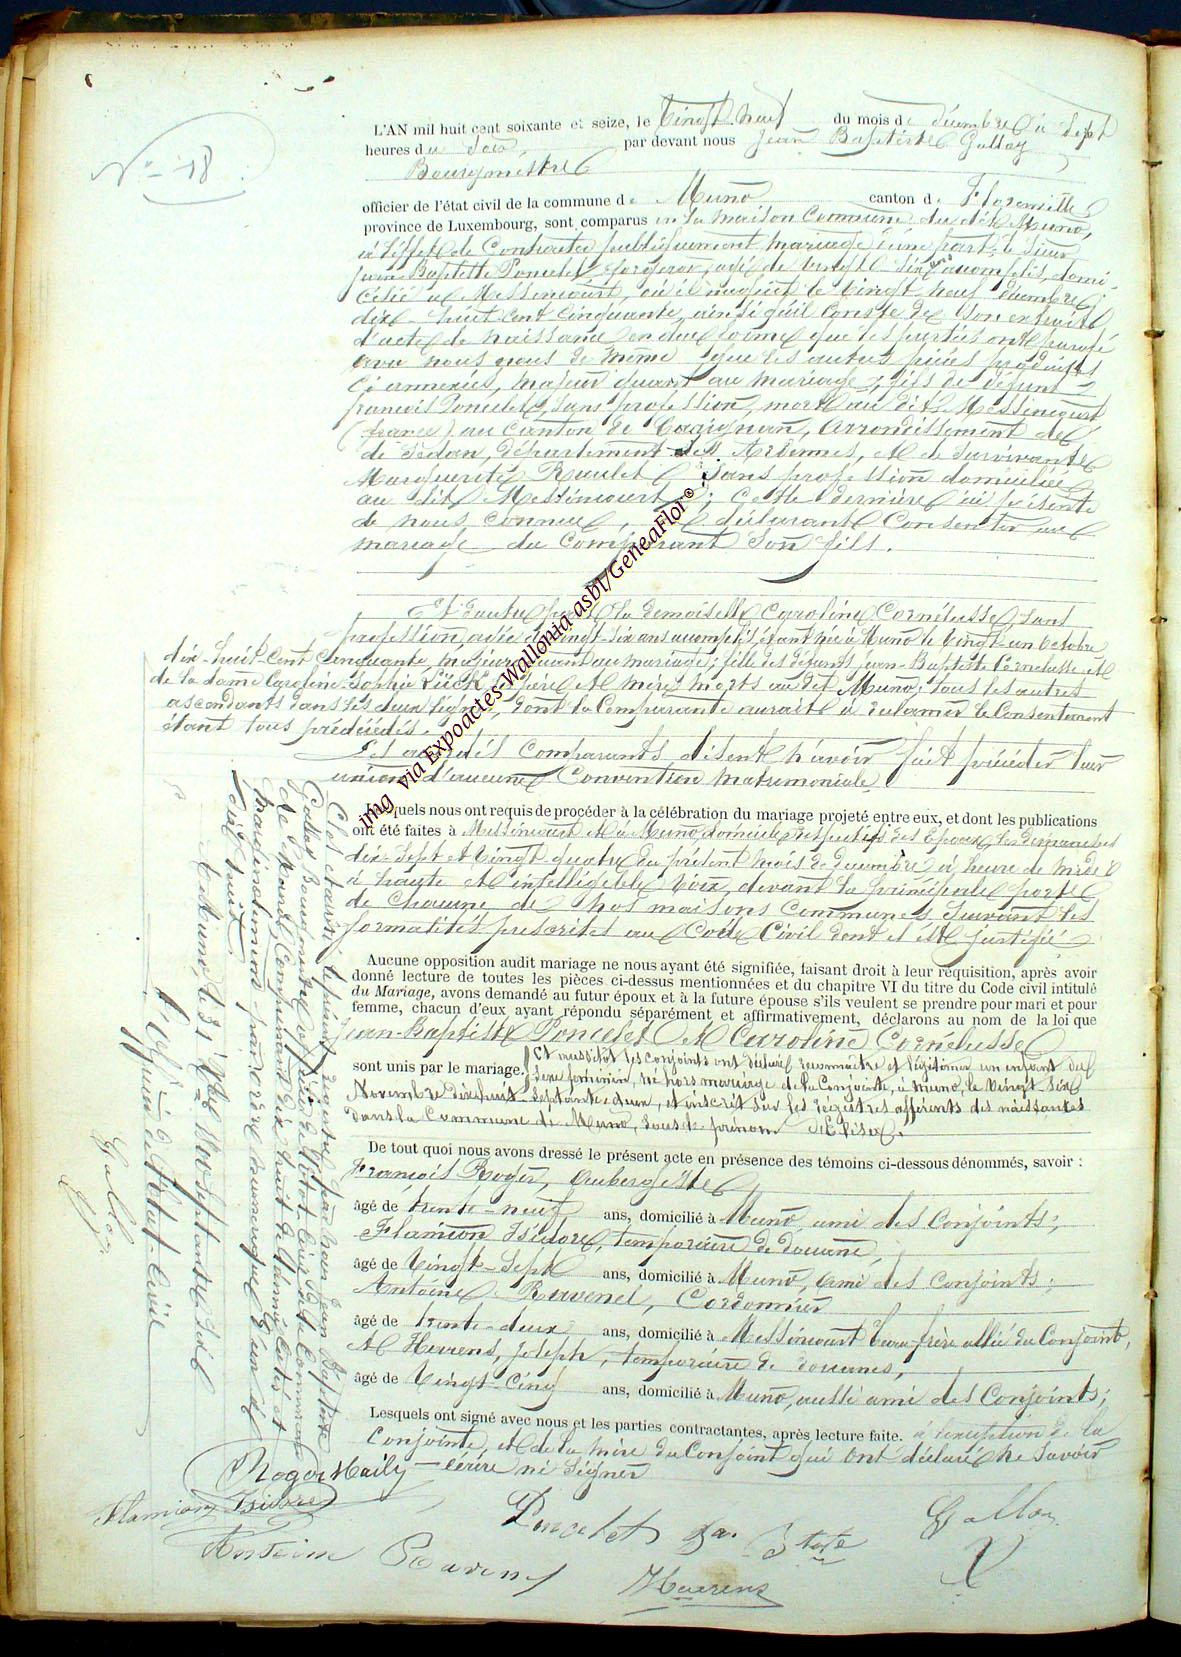 N° 18
L'AN mil huit cent soixante et seize, le Vingt neuf du mois de décembre à sept
heures du soir, par devant nous Jean Baptiste Gallay
Bourgmestre
officier de l'état civil de la commune de Muno canton de Florenville
province de Luxembourg, sont comparus en la maison Commune du dit Muno,
à l'effet de Contracter publiquement mariage d'une part, le Sieur
jean Baptiste Poncelet, forgeron, agé de vingt six ans accomplis, domi-
cilié à Messincourt, où il naquit le Vingt neuf décembre
dix huit cent cinquante, ainsi qu'il conste de son extrait
d'acte de naissance en due forme que les parties ont parafé
avec nous de même que les autres pièces produites
ci annexées, majeur quant au mariage; fils de défunt
françois Poncelet, sans profession, mort au dit Messincourt
(france) au Canton de Carignan, Arrondissement de
de Sedan, Département des Ardennes, et de Survivante
Marguerite Raulet Sans profession domiciliée
au dit Messincourt; Cette dernière ici présente
de nous connue, déclarant Consentir au
mariage du Comparant son fils.
Et d'autre part la demoiselle Caroline Cornélusse, sans
profession, agée de vingt-six ans accomplis, étant née à Muno le vingt-un octobre
dix-huit-cent cinquante, majeure quant au mariage; fille des défunts jean-Baptiste Cornelusse et
de la dame Caroline-Sophie Lück père et mère morts au dit Muno; tous les autres
ascendants dans les deux lignes, dont la Comparante aurait à réclamer le Consentement
étant tous prédécédés.
Les comparants disent n'avoir fait précéder leur
union d'aucune Convention matrimoniale
Lesquels nous ont requis de procéder à la célébration du mariage projeté entre eux, et dont les publications
ont été faites à Messincourt et à Muno domiciles respectifs des Epoux, les dimanches
dix-sept et vingt quatre du présent mois de décembre à heure de midi
à haute et intelligible voix, devant la principale porte
de chacune de nos maisons Communes suivant les
formalités prescrites au Code Civil dont il est justifié
Aucune opposition audit mariage ne nous ayant été signifiée, faisant droit à leur réquisition, après avoir
donné lecture de toutes les pièces ci-dessus mentionnées et du chapitre VI du titre du Code civil intitulé
du Mariage, avons demandé au futur époux et à la future épouse s'ils veulent se prendre pour mari et pour
femme, chacun d'eux ayant répondu séparément et affirmativement, déclarons au nom de la loi que
jean-Baptiste Poncelet et Caroline Cornelusse
sont unis par le mariage. Et aussitôt les conjoints ont déclaré reconnaître et légitimer un enfant du
sexe féminin, né hors mariage de la Conjointe, à Muno, le vingt six
Novembre dixhuit-septante et un, et inscrit sur les régistres afférents des naissances
dans la Commune de Muno, sous le prénom d'Elise.
De tout quoi nous avons dressé le présent acte en présence des témoins ci-dessous dénommés, savoir :
François Roger, Aubergiste
âgé de trente-neuf ans, domicilié à Muno, ami des Conjoints;
Flamion Isidore, temporaire de douane,
âgé de Vingt-Sept ans, domicilié à Muno, ami des Conjoints;
Antoine Ravenel, Cordonnier
âgé de trente-deux ans, domicilié à Messincourt beau-frère allié du Conjoint,
et Heurens, joseph, temporaire de douanes,
âgé de Vingt-Cinq ans, domicilié à Muno, aussi ami des Conjoints;
Lesquels ont signé avec nous et les parties contractantes, après lecture faite. à l'exception de la
Conjointe, et de la mère du Conjoint qui ont déclaré ne savoir
écrire ni signer
Clos et arrêté le présent registre par nous jean Baptiste
Gallay Bourgmestre officier de l'état civil de la Commune
de Muno, Comprenant dix huit
dix huit
A Muno, le 31 Xbre
L'officier de l'état-civil
Gallay
Flamion Isidore
Antoine Ravenel
Poncelet Ja. Bte
Heurens
Gallay
img via Expoactes-Wallonia asbl/GeneaFlor©